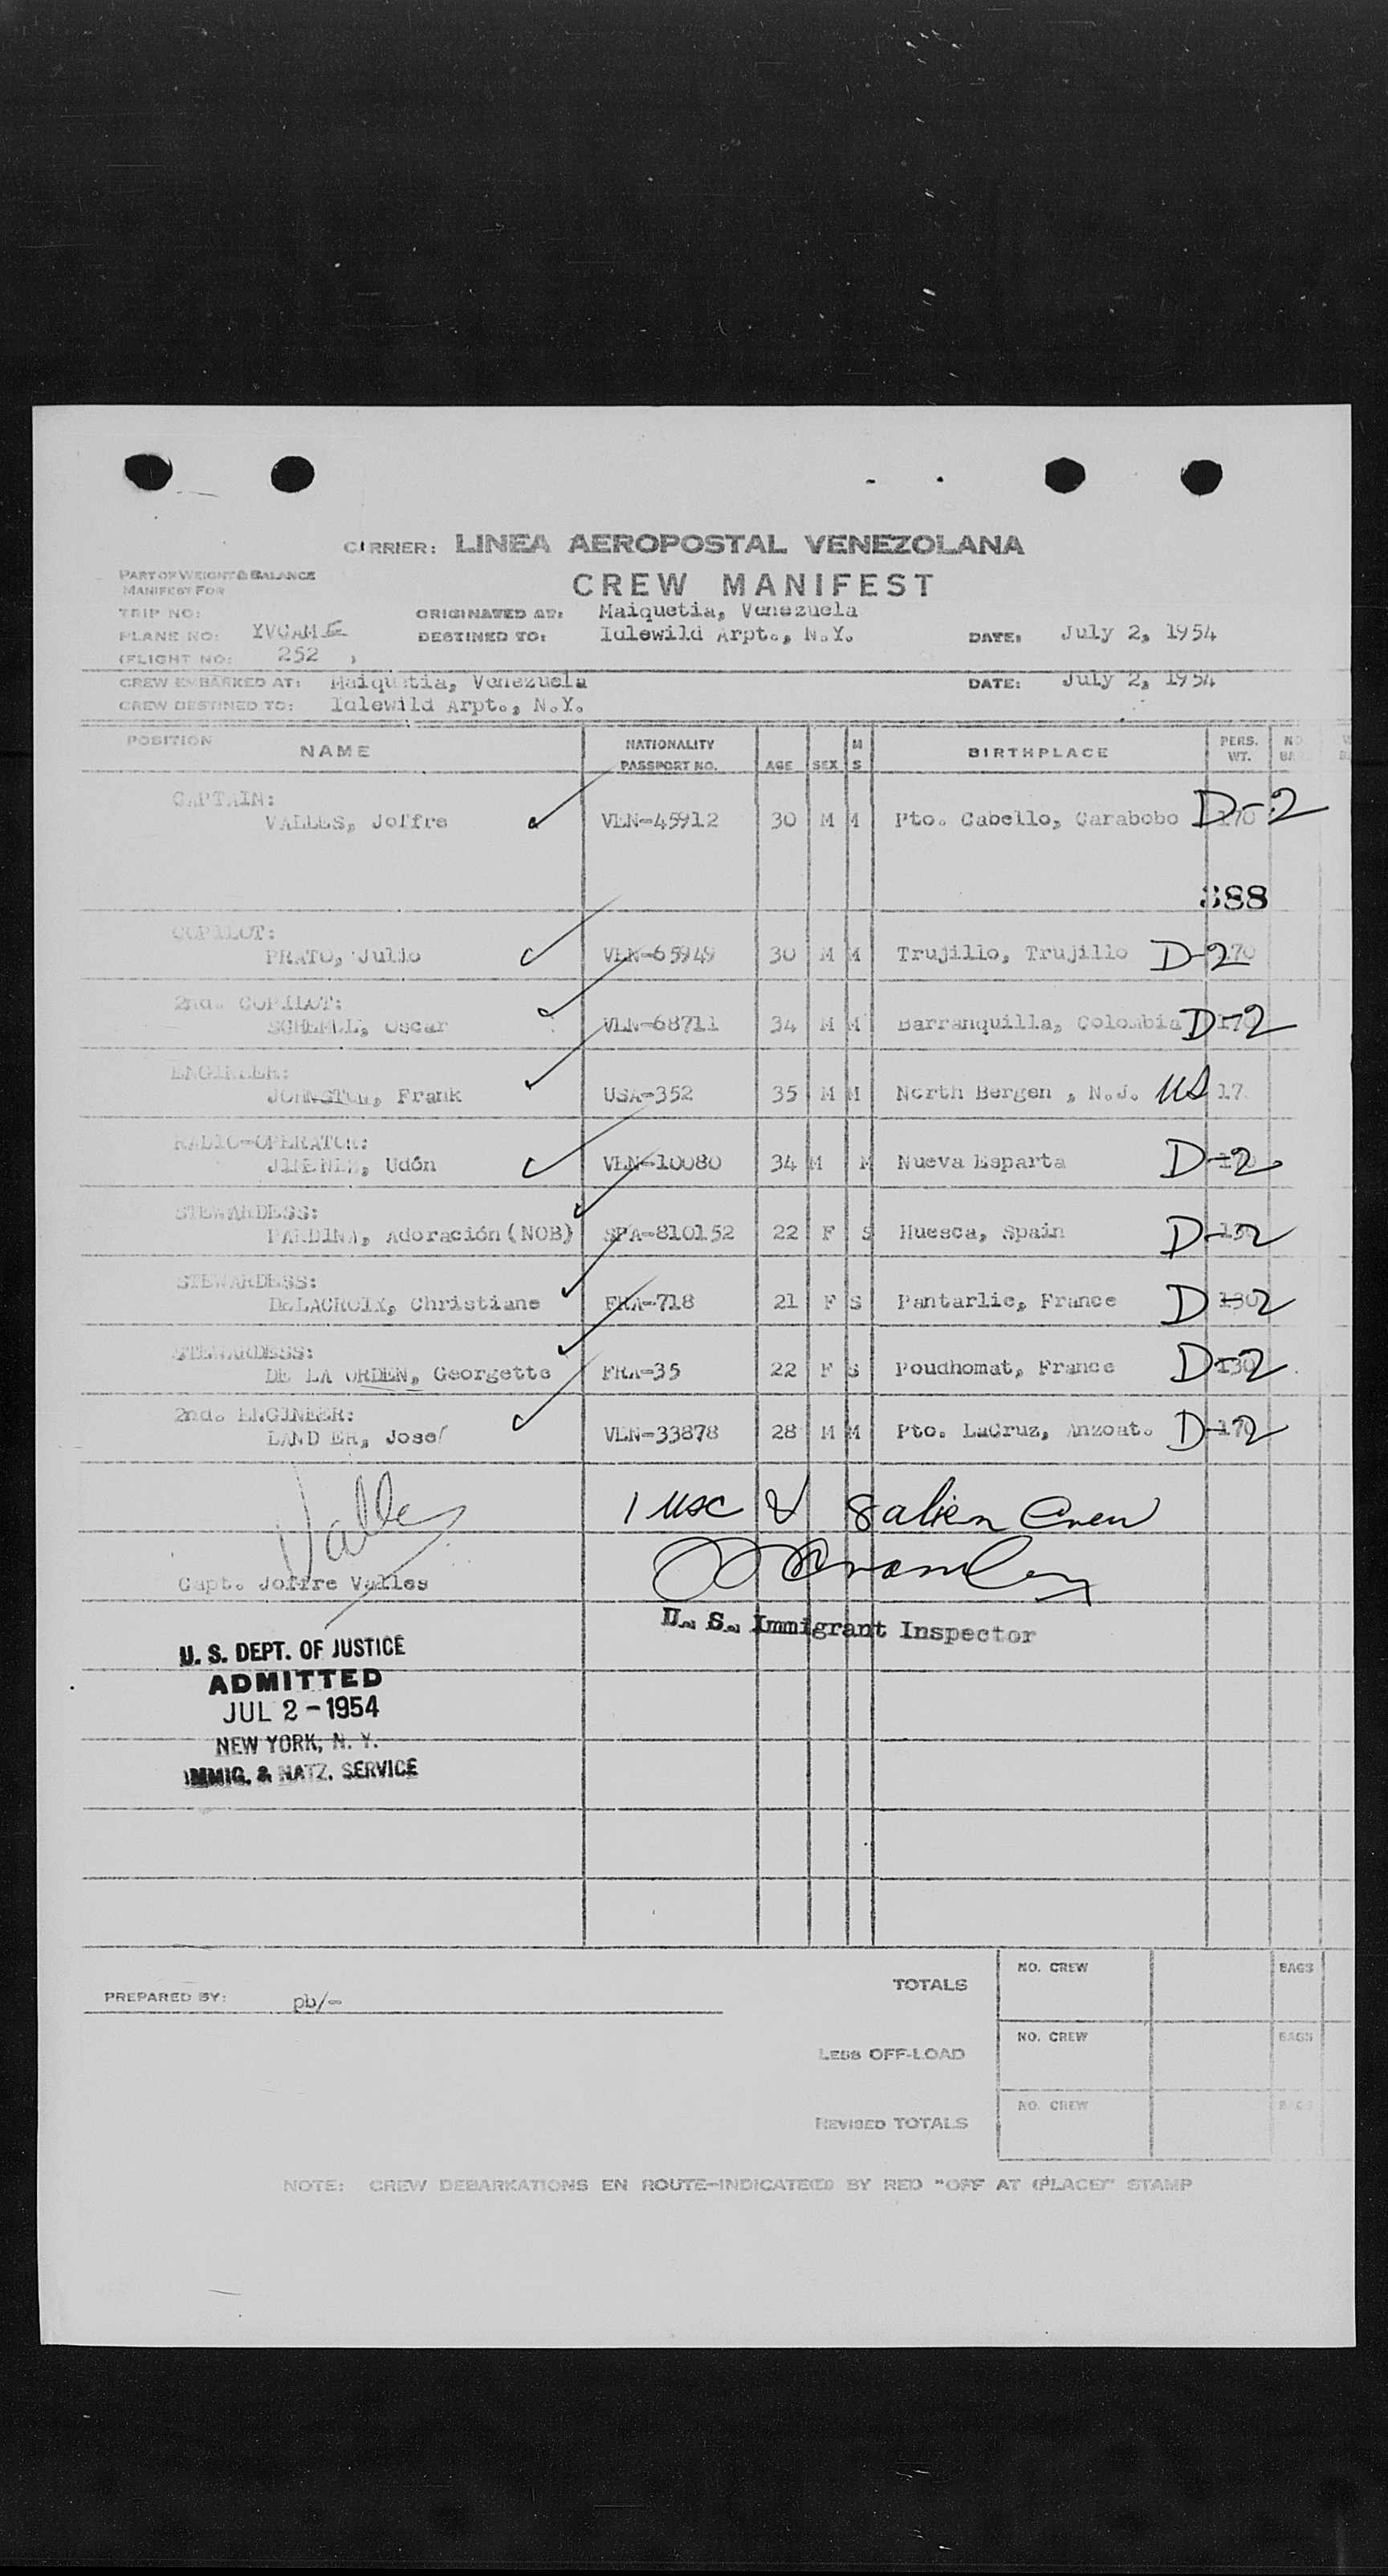 CARRIER: LINEA AEROPOSTAL VENEZOLANA
PART OF WEIGHT & BALANCE
MANIFEST FOR
CREW MANIFEST
TRIP NO: ORIGINATED AT: Maiquetia, Venezuela
PLANE NO: DESTINED TO: Idlewild Arpt., N.Y. DATE: July 2, 1954
(FLIGHT NO: 252 )
CREW EMBARKED AT: Maiquetia, Venezuela DATE: July 2, 1954
CREW DESTINED TO: Idlewild Arpt., N.Y.
POSITION NAME NATIONALITY PASSPORT NO. AGE SEX M S BIRTHPLACE PERS. WT.
CAPTAIN:
VALLES, Joffre VEN-45912 30 M M Pto. Cabello, Carabobo 170 D-2
388
COPILOT:
PRATO, Julio VEN-65949 30 M M Trujillo, Trujillo D-2 170
2nd. COPILOT:
Oscar VEN-68711 34 M M Barranquilla, Colombia D-2 170
ENGINEER:
JOHNSTON, Frank USA-352 35 M M North Bergen , N.J. US 17
RADIO-OPERATOR:
JIMENEZ, Udón VEN-10080 34 M M Nueva Esparta D-2
STEWARDESS:
PARDINA, Adoración (NOB) SPA-810152 22 F S Huesca, Spain D-2 130
STEWARDESS:
DELACROIX, Christiane FRA-718 21 F S Pantarlie, France D-2 130
STEWARDESS:
DE LA ORDEN, Georgette FRA-35 22 F S Poudhomat, France D-2 130
2nd. ENGINEER:
LANDER, Jose VEN-33878 28 M M Pto. LaCruz, Anzoat. D-2 170
Valles 1 USC & 8 alien Crew
Capt. Joffre Valles
U. S. Immigrant Inspector
U. S. DEPT. OF JUSTICE
ADMITTED
JUL 2 - 1954
NEW YORK, N. Y.
IMMIG. & NATZ. SERVICE
PREPARED BY: pb/-
TOTALS NO. CREW BAGS
LESS OFF-LOAD NO. CREW BAGS
REVISED TOTALS NO. CREW BAGS
NOTE: CREW DEBARKATIONS EN ROUTE-INDICATE(D) BY RED "OFF AT (PLACE)" STAMP